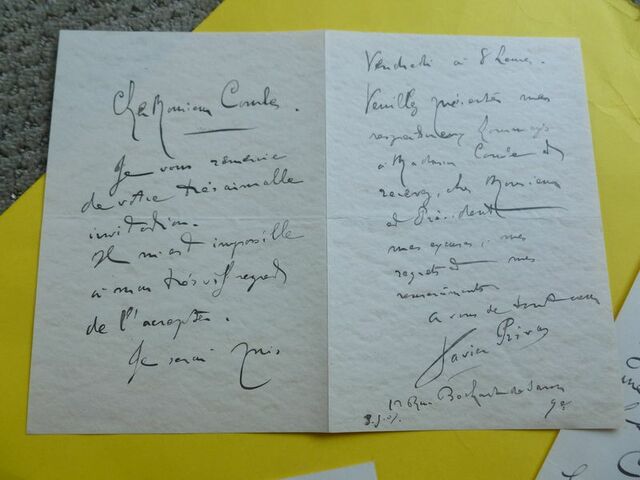 Cher Monsieur Combes.
Je vous remercie
de votre très aimable
invitation.
Il m'est impossible
à mon très vif regret
de l'accepter.
Je serai pris
Vendredi à 8 heures.
Veuillez présenter mes
respectueux hommages
à Madame et
recevez, cher Monsieur
et Président
mes excuses, mes
regrets et mes
remerciements
à vous de tout cœur
Xavier Privas
17 Rue Bochart de Saron